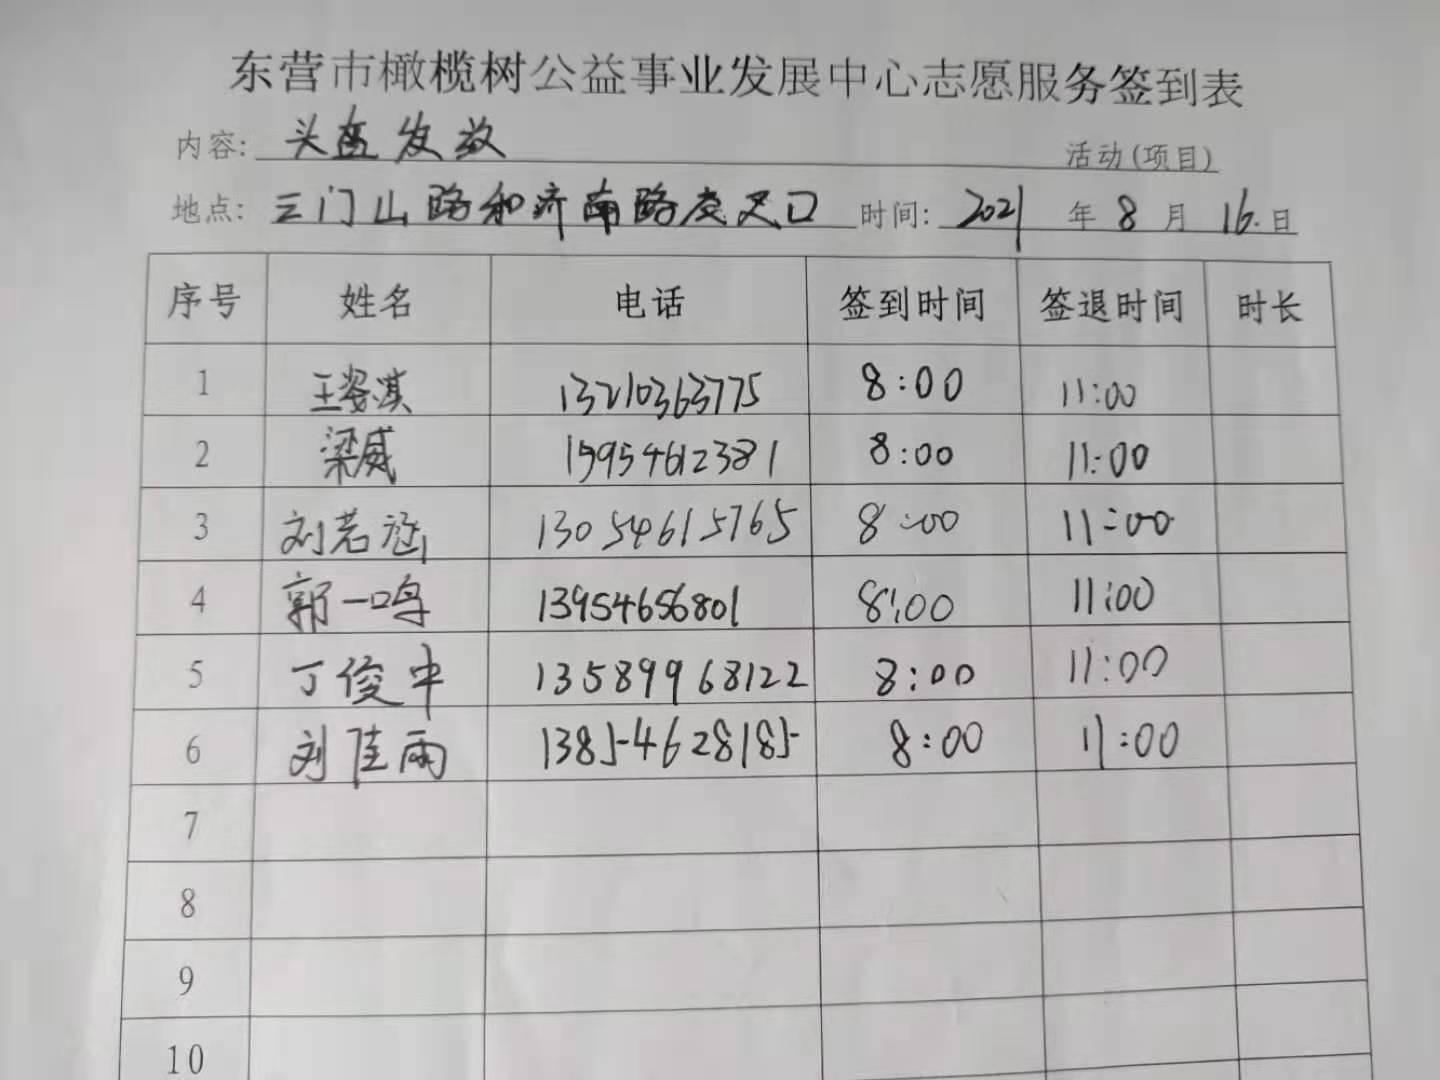 东营市橄榄树公益事业发展中心志愿服务签到表
内容: 头盔发放 活动(项目)
地点: 三门山路和济南路交叉口 时间: 2021 年 8 月 16 日
序号 姓名 电话 签到时间 签退时间 时长
1 王姿淇 13210363775 8:00 11:00
2 梁威 15954612381 8:00 11:00
3 刘若涵 13054615765 8:00 11:00
4 郭一鸣 13954656801 8:00 11:00
5 丁俊中 13589968122 8:00 11:00
6 刘佳雨 13854628185 8:00 11:00
7
8
9
10